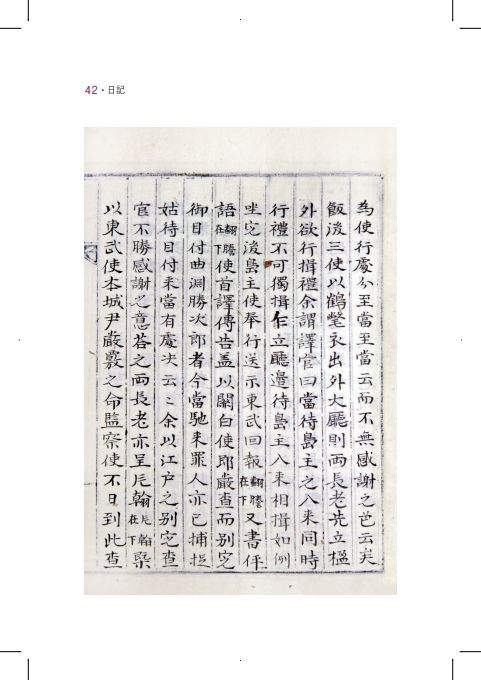 42 · 日記
為使行處分至當至當云而不無感謝之色云矣
飯後三使以鶴氅衣出外大廳則兩長老先立楹
外欲行揖禮余謂譯官曰當待島主之入来同時
行禮不可獨揖乍立廳邊待島主入来相揖如例
坐定後島主使奉行送示東武回報翻謄在下又書伻
語翻謄在下使首譯傳告盖以關白使郎嚴查而別定
御目付曲淵勝次郎者今當馳来罪人亦已捕捉
姑待目付来當有處决云云余以江戶之別定查
官不勝感謝之意荅之兩長老亦呈片翰片翰在下槩
以東武使本城尹嚴覈之命監察使不日到此查